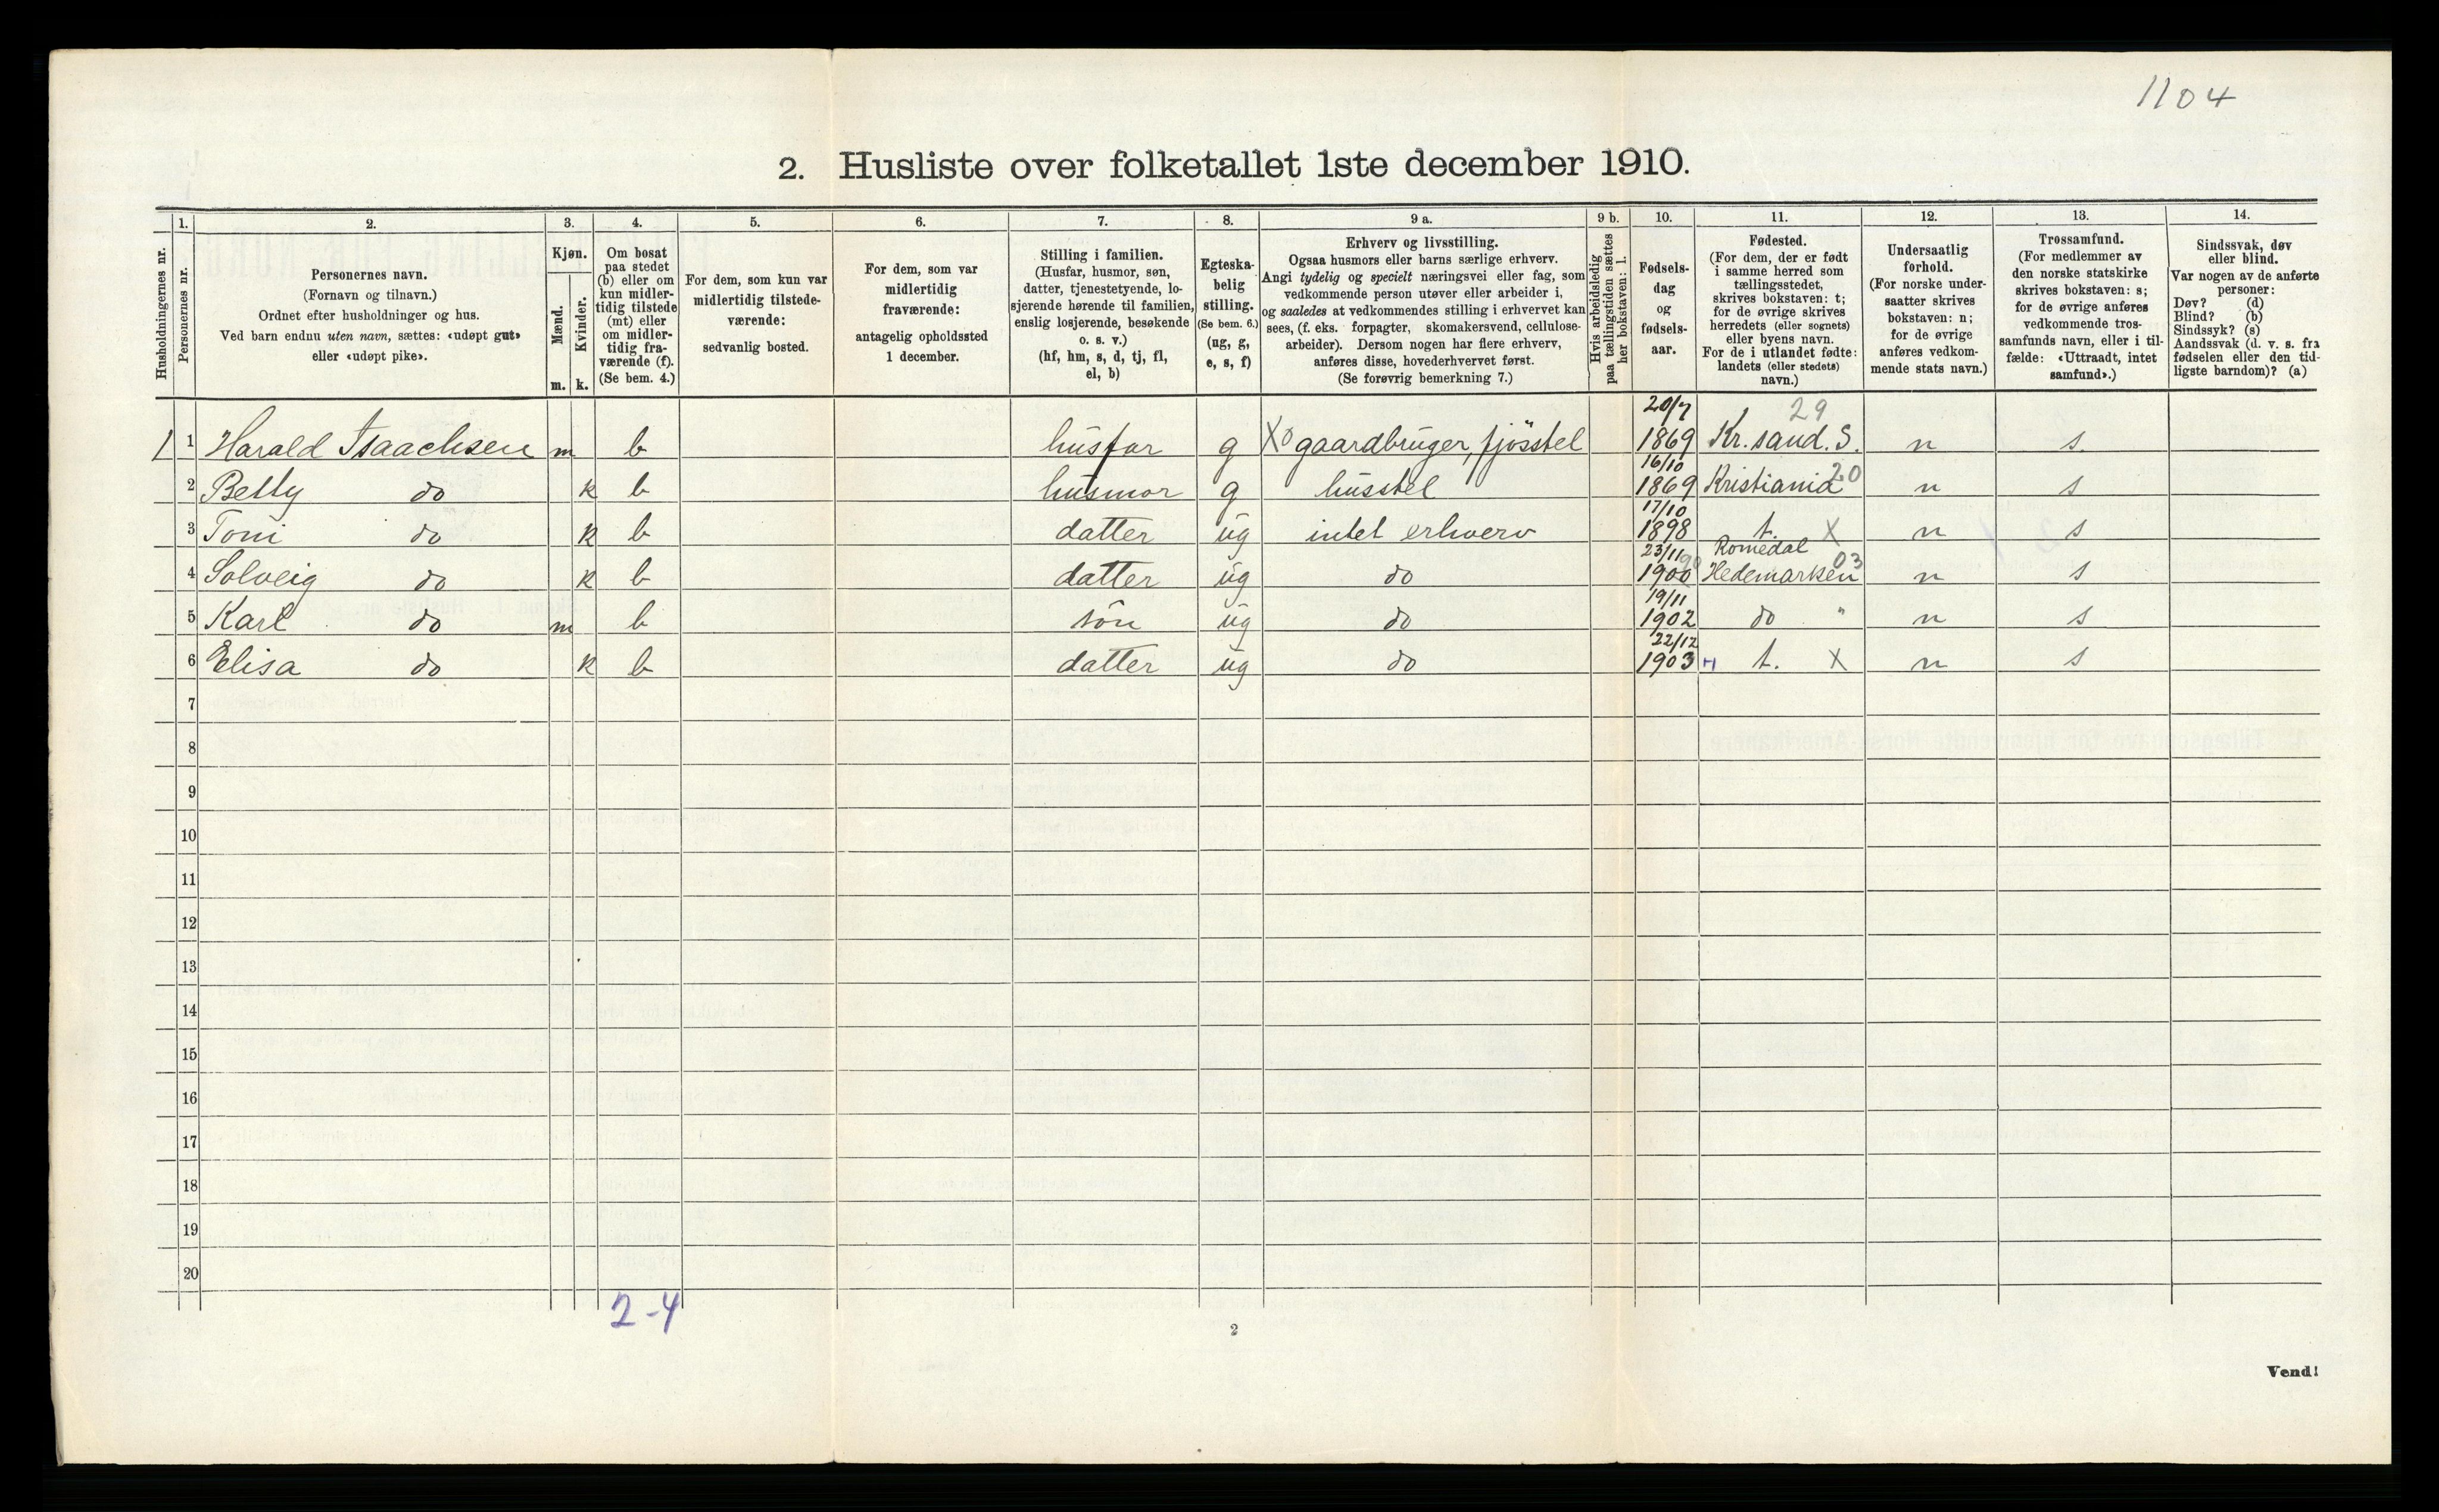 1104
2. Husliste over folketallet 1ste december 1910.
Husholdningernes nr.
1.
Personernes nr.
2.
Personernes navn.
(Fornavn og tilnavn.)
Ordnet efter husholdninger og hus.
Ved barn endnu uten navn, sættes: «udøpt gut»
eller «udøpt pike».
3.
Kjøn.
Mænd.
Kvinder.
m. k.
4.
Om bosat
paa stedet
(b) eller om
kun midler-
tidig tilstede
(mt) eller
om midler-
tidig fra-
værende (f).
(Se bem. 4.)
5.
For dem, som kun var
midlertidig tilstede-
værende:
sedvanlig bosted.
6.
For dem, som var
midlertidig
fraværende:
antagelig opholdssted
1 december.
7.
Stilling i familien.
(Husfar, husmor, søn,
datter, tjenestetyende, lo-
sjerende hørende til familien,
enslig losjerende, besøkende
o. s. v.)
(hf, hm, s, d, tj, fl,
el, b)
8.
Egteska-
belig
stilling.
(Se bem. 6.)
(ug, g,
e, s, f)
9 a.
Erhverv og livsstilling.
Ogsaa husmors eller barns særlige erhverv.
Angi tydelig og specielt næringsvei eller fag, som
vedkommende person utøver eller arbeider i,
og saaledes at vedkommendes stilling i erhvervet kan
sees, (f. eks. forpagter, skomakersvend, cellulose-
arbeider). Dersom nogen har flere erhverv,
anføres disse, hovederhvervet først.
(Se forøvrig bemerkning 7.)
9 b.
Hvis arbeidsledig
paa tællingstiden sættes
her bokstaven: l.
10.
Fødsels-
dag
og
fødsels-
aar.
11.
Fødested.
(For dem, der er født
i samme herred som
tællingsstedet,
skrives bokstaven: t;
for de øvrige skrives
herredets (eller sognets)
eller byens navn.
For de i utlandet fødte:
landets (eller stedets)
navn.)
12.
Undersaatlig
forhold.
(For norske under-
saatter skrives
bokstaven: n;
for de øvrige
anføres vedkom-
mende stats navn.)
13.
Trossamfund.
(For medlemmer av
den norske statskirke
skrives bokstaven: s;
for de øvrige anføres
vedkommende tros-
samfunds navn, eller i til-
fælde: «Uttraadt, intet
samfund».)
14.
Sindssvak, døv
eller blind.
Var nogen av de anførte
personer:
Døv? (d)
Blind? (b)
Sindssyk? (s)
Aandssvak (d. v. s. fra
fødselen eller den tid-
ligste barndom)? (a)
20/7 29
1 1 Harald Isaachsen m b husfar g X0 gaardbruger, fjösstel 1869 Kr.sand. S. n s.
16/10 20
2 Betty do k b husmor g husstel 1869 Kristiania n s
17/10
3 Toni do k b datter ug intet erhverv 1898 t. X n s
23/11 90 Romedal 03
4 Solveig do k b datter ug do 1900 Hedemarken n s
19/11
5 Karl do m b sön ug do 1902 do " n s
22/12
6 Elisa do k b datter ug do 1903 H t. X n s
7
8
9
10
11
12
13
14
15
16
17
18
19
20
2-4
2
Vend!